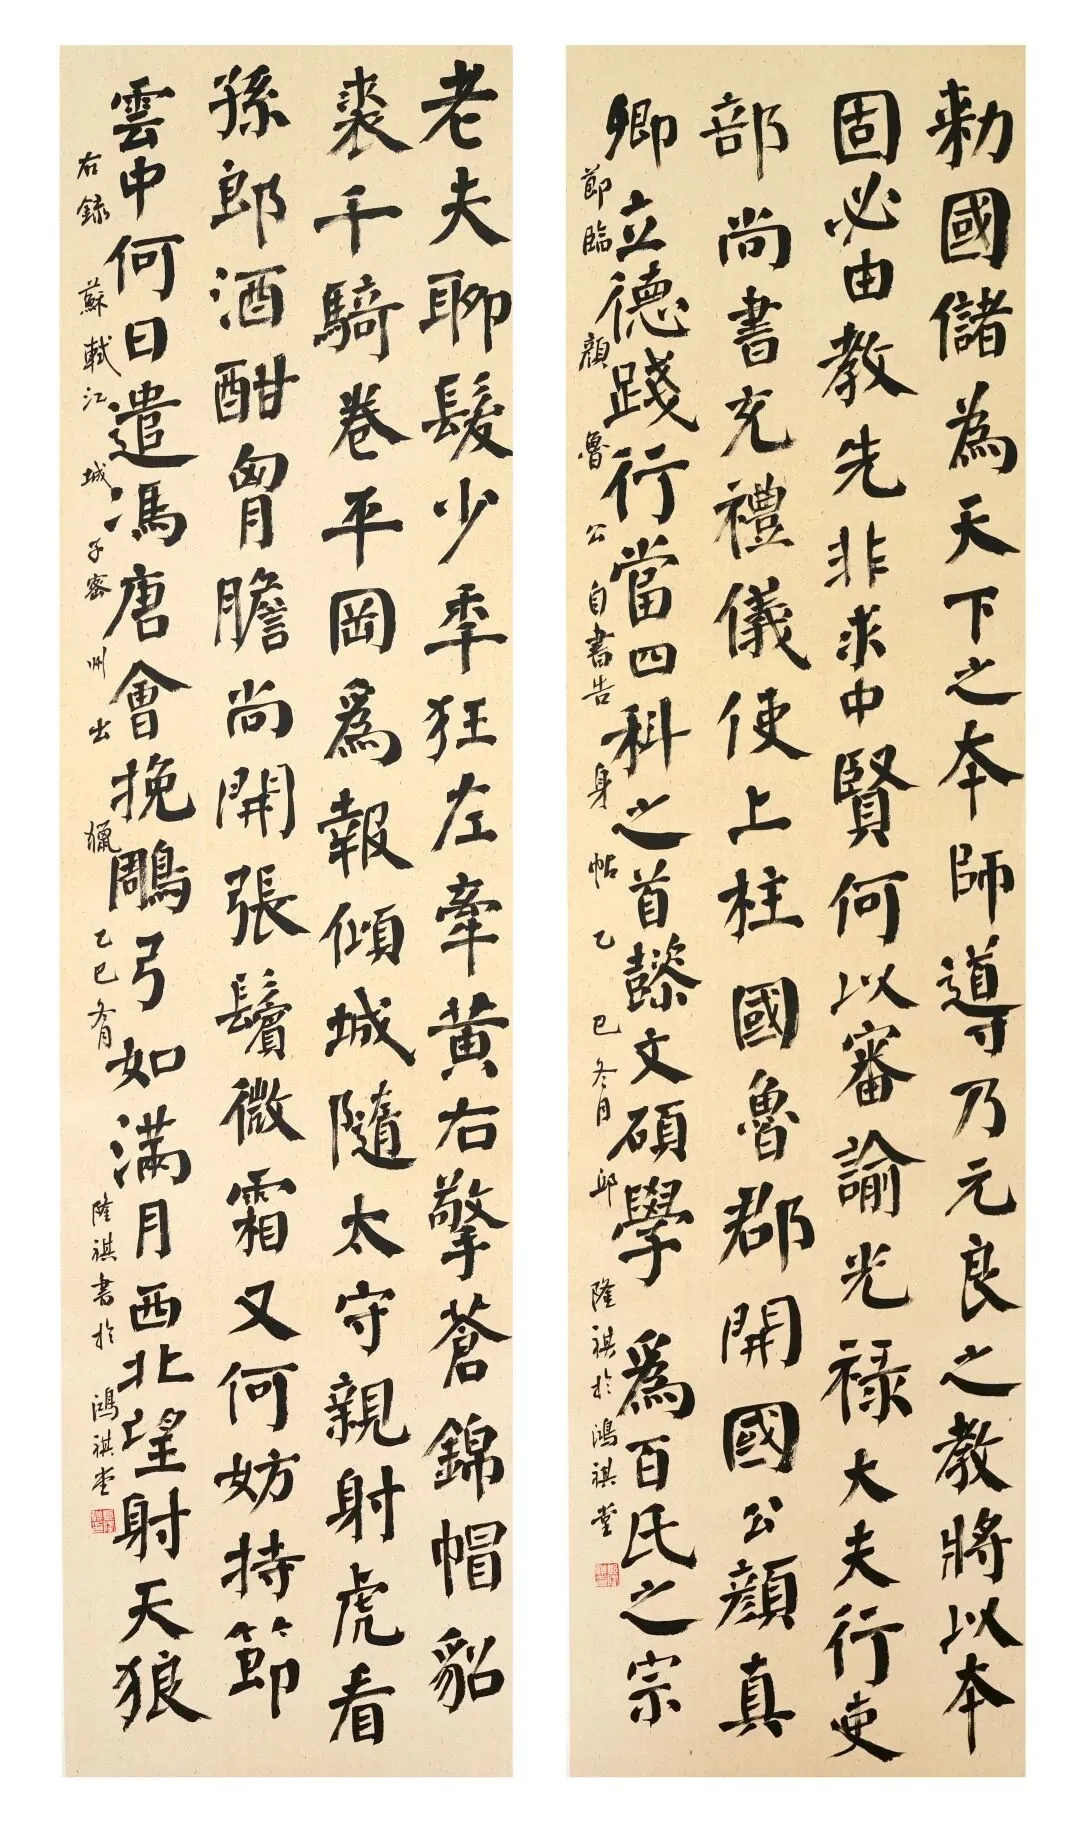 勑國儲為天下之本師導乃元良之教將以本
固必由教先非求中賢何以審諭光禄大夫行吏
部尚書充禮儀使上柱國魯郡開國公顏真
卿立德踐行當四科之首懿文碩學為百氏之宗
節臨顏魯公自書告身帖乙巳冬月邱隆祺於鴻祺堂
老夫聊髮少年狂左牽黃右擎蒼錦帽貂
裘千騎卷平岡為報傾城隨太守親射虎看
孫郎酒酣胷膽尚開張鬢微霜又何妨持節
雲中何日遣馮唐會挽鵰弓如滿月西北望射天狼
右録蘇軾江城子密州出獵乙巳冬月隆祺書於鴻祺堂